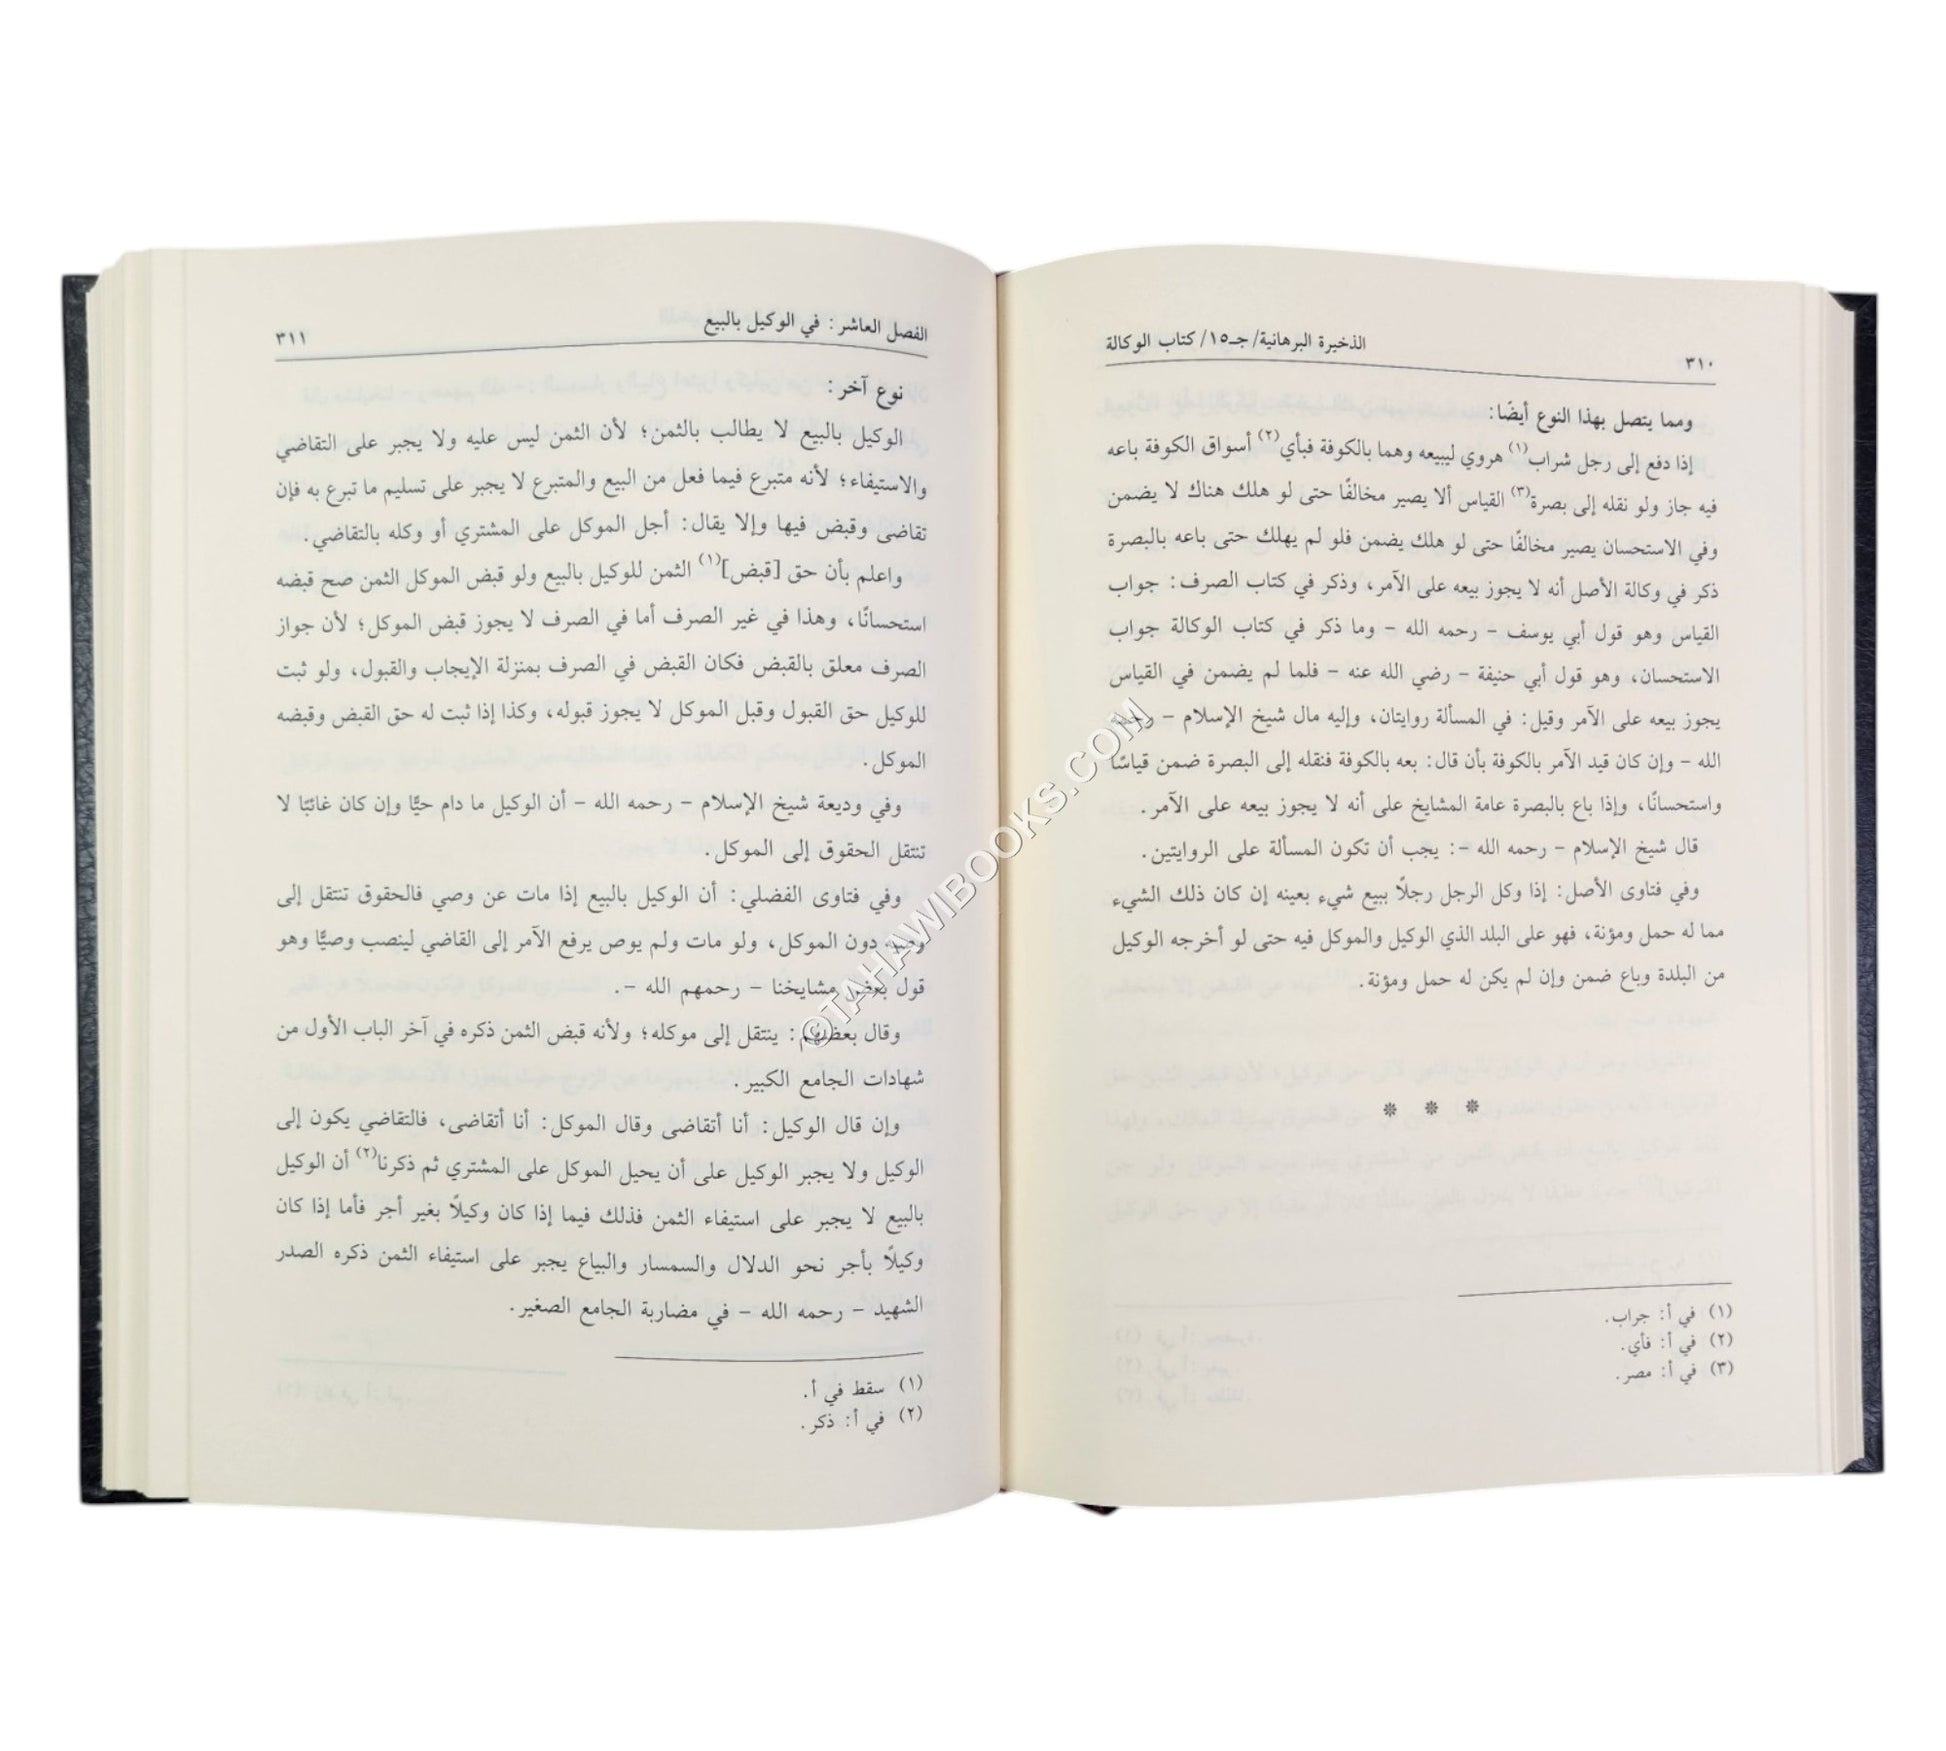 ٣١٠
الذخيرة البرهانية/ جـ١٥/ كتاب الوكالة
ومما يتصل بهذا النوع أيضًا:
إذا دفع إلى رجل شراب(١) هروي ليبيعه وهما بالكوفة فبأي(٢) أسواق الكوفة باعه
فيه جاز ولو نقله إلى بصرة(٣) القياس ألا يصير مخالفًا حتى لو هلك هناك لا يضمن
وفي الاستحسان يصير مخالفًا حتى لو هلك يضمن فلو لم يهلك حتى باعه بالبصرة
ذكر في وكالة الأصل أنه لا يجوز بيعه على الآمر، وذكر في كتاب الصرف: جواب
القياس وهو قول أبي يوسف - رحمه الله - وما ذكر في كتاب الوكالة جواب
الاستحسان، وهو قول أبي حنيفة - رضي الله عنه - فلما لم يضمن في القياس
يجوز بيعه على الآمر وقيل: في المسألة روايتان، وإليه مال شيخ الإسلام - رحمه
الله - وإن كان قيد الآمر بالكوفة بأن قال: بعه بالكوفة فنقله إلى البصرة ضمن قياسًا
واستحسانًا، وإذا باع بالبصرة عامة المشايخ على أنه لا يجوز بيعه على الآمر.
قال شيخ الإسلام - رحمه الله -: يجب أن تكون المسألة على الروايتين.
وفي فتاوى الأصل: إذا وكل الرجل رجلًا ببيع شيء بعينه إن كان ذلك الشيء
مما له حمل ومؤنة، فهو على البلد الذي الوكيل والموكل فيه حتى لو أخرجه الوكيل
من البلدة وباع ضمن وإن لم يكن له حمل ومؤنة.
* * *
(١) في أ: جراب.
(٢) في أ: فأي.
(٣) في أ: مصر.
الفصل العاشر: في الوكيل بالبيع
٣١١
نوع آخر:
الوكيل بالبيع لا يطالب بالثمن؛ لأن الثمن ليس عليه ولا يجبر على التقاضي
والاستيفاء؛ لأنه متبرع فيما فعل من البيع والمتبرع لا يجبر على تسليم ما تبرع به فإن
تقاضى وقبض فيها وإلا يقال: أجل الموكل على المشتري أو وكله بالتقاضي.
واعلم بأن حق [قبض](١) الثمن للوكيل بالبيع ولو قبض الموكل الثمن صح قبضه
استحسانًا، وهذا في غير الصرف أما في الصرف لا يجوز قبض الموكل؛ لأن جواز
الصرف معلق بالقبض فكان القبض في الصرف بمنزلة الإيجاب والقبول، ولو ثبت
للوكيل حق القبول وقبل الموكل لا يجوز قبوله، وكذا إذا ثبت له حق القبض وقبضه
الموكل.
وفي وديعة شيخ الإسلام - رحمه الله - أن الوكيل ما دام حيًّا وإن كان غائبًا لا
تنتقل الحقوق إلى الموكل.
وفي فتاوى الفضلي: أن الوكيل بالبيع إذا مات عن وصي فالحقوق تنتقل إلى
وصيه دون الموكل، ولو مات ولم يوص يرفع الأمر إلى القاضي لينصب وصيًّا وهو
قول بعض مشايخنا - رحمهم الله -.
وقال بعضهم: ينتقل إلى موكله؛ ولأنه قبض الثمن ذكره في آخر الباب الأول من
شهادات الجامع الكبير.
وإن قال الوكيل: أنا أتقاضى وقال الموكل: أنا أتقاضى، فالتقاضي يكون إلى
الوكيل ولا يجبر الوكيل على أن يحيل الموكل على المشتري ثم ذكرنا(٢) أن الوكيل
بالبيع لا يجبر على استيفاء الثمن فذلك فيما إذا كان وكيلًا بغير أجر فأما إذا كان
وكيلًا بأجر نحو الدلال والسمسار والبياع يجبر على استيفاء الثمن ذكره الصدر
الشهيد - رحمه الله - في مضاربة الجامع الصغير.
(١) سقط في أ.
(٢) في أ: ذكر.
©TAHAWIBOOKS.COM